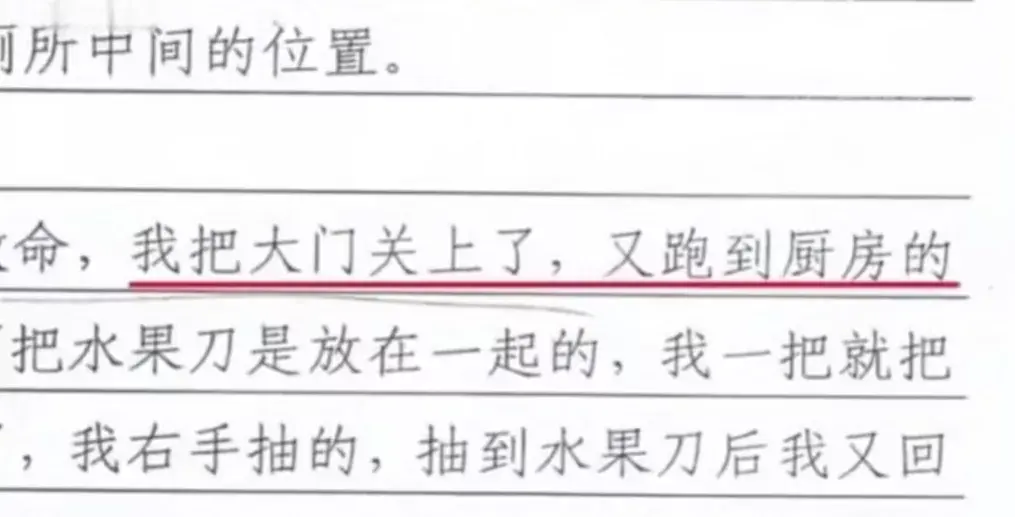 所中间的位置。
命，我把大门关上了，又跑到厨房的
把水果刀是放在一起的，我一把就把
，我右手抽的，抽到水果刀后我又回